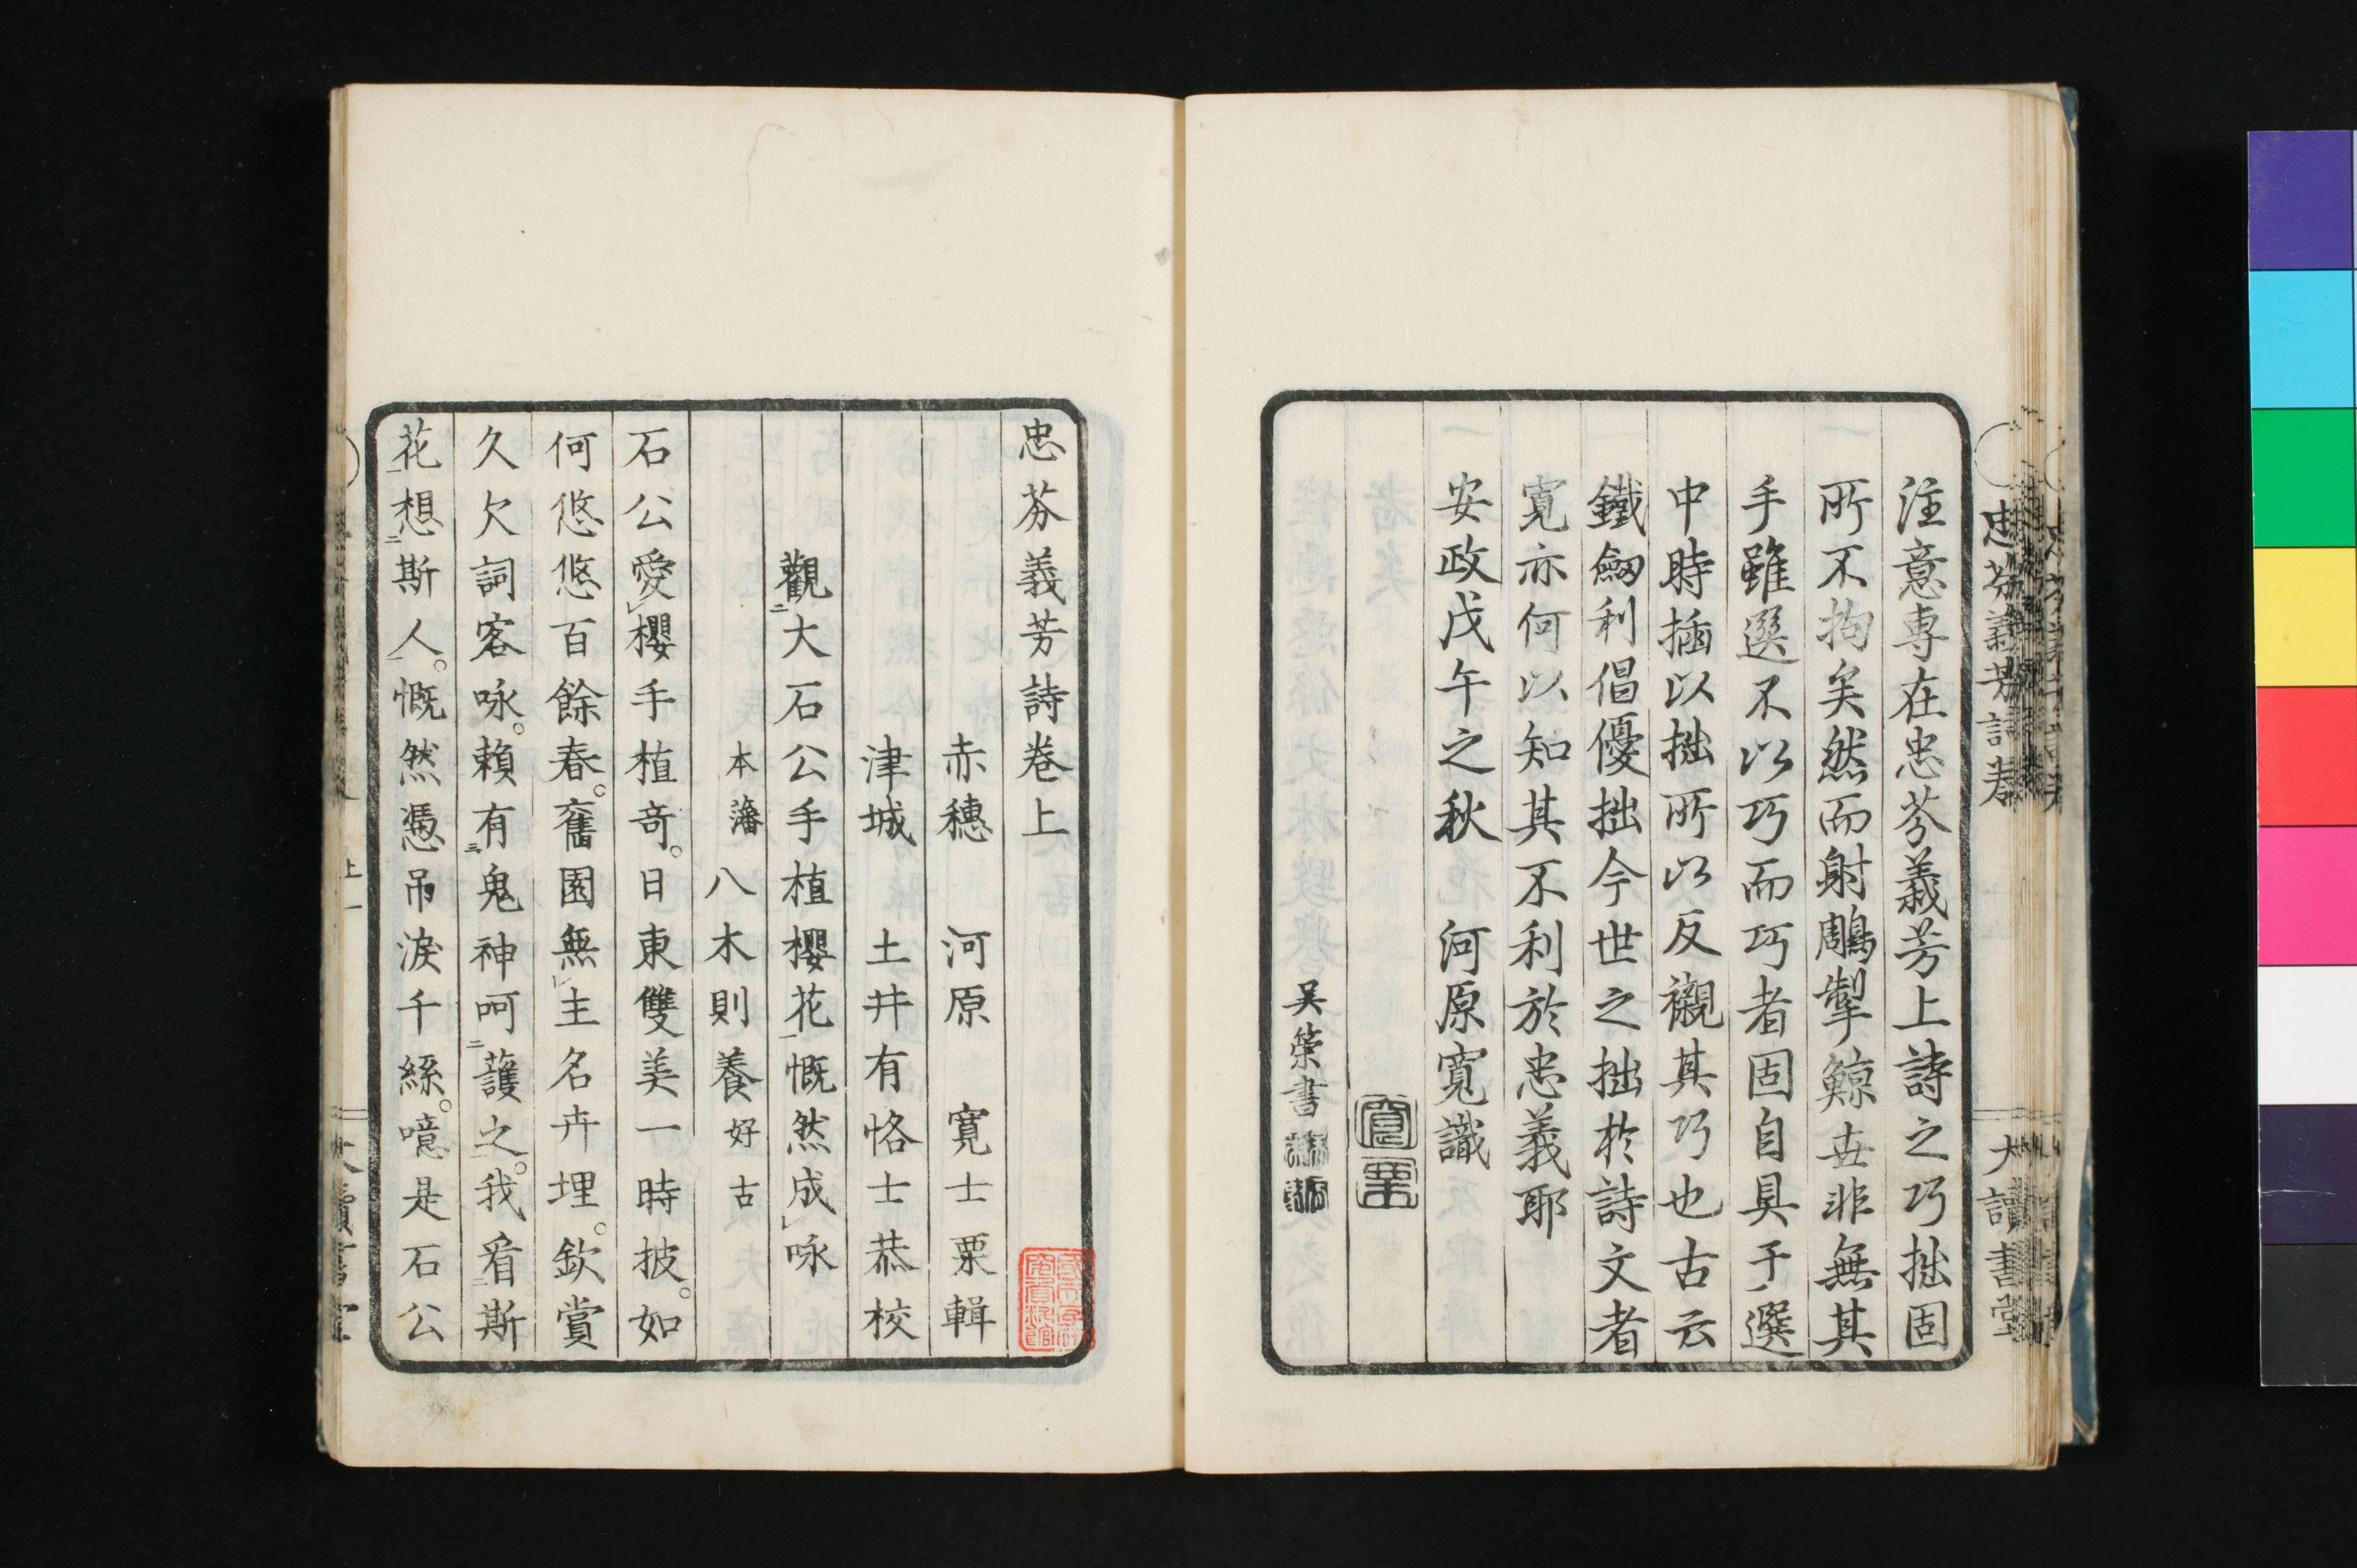 注意專在忠芬義芳上詩之巧拙固
所不拘矣然而射鵰掣鯨去非無其
手雖選不以巧而巧者固自具于選
中時插以拙所以反襯其巧也古云
鐵劒利倡優拙今世之拙於詩文者
寛亦何以知其不利於忠義耶
安政戊午之秋　河原寬識
吴榮書
忠芬義芳詩卷上
赤穗　河原　寬士栗輯
津城　土井有恪士恭校
觀二大石公手植櫻花一慨然成レ咏
本藩　八木則養好古
石公愛レ櫻手植奇。日東雙美一時披。如
何悠悠百餘春。舊園無レ主名卉埋。欽賞
久欠詞客咏。賴有三鬼神呵二護之一。我看二斯
花一想二斯人一。慨然憑吊淚千絲。噫是石公
忠芬義芳詩卷
大讀書堂
上一